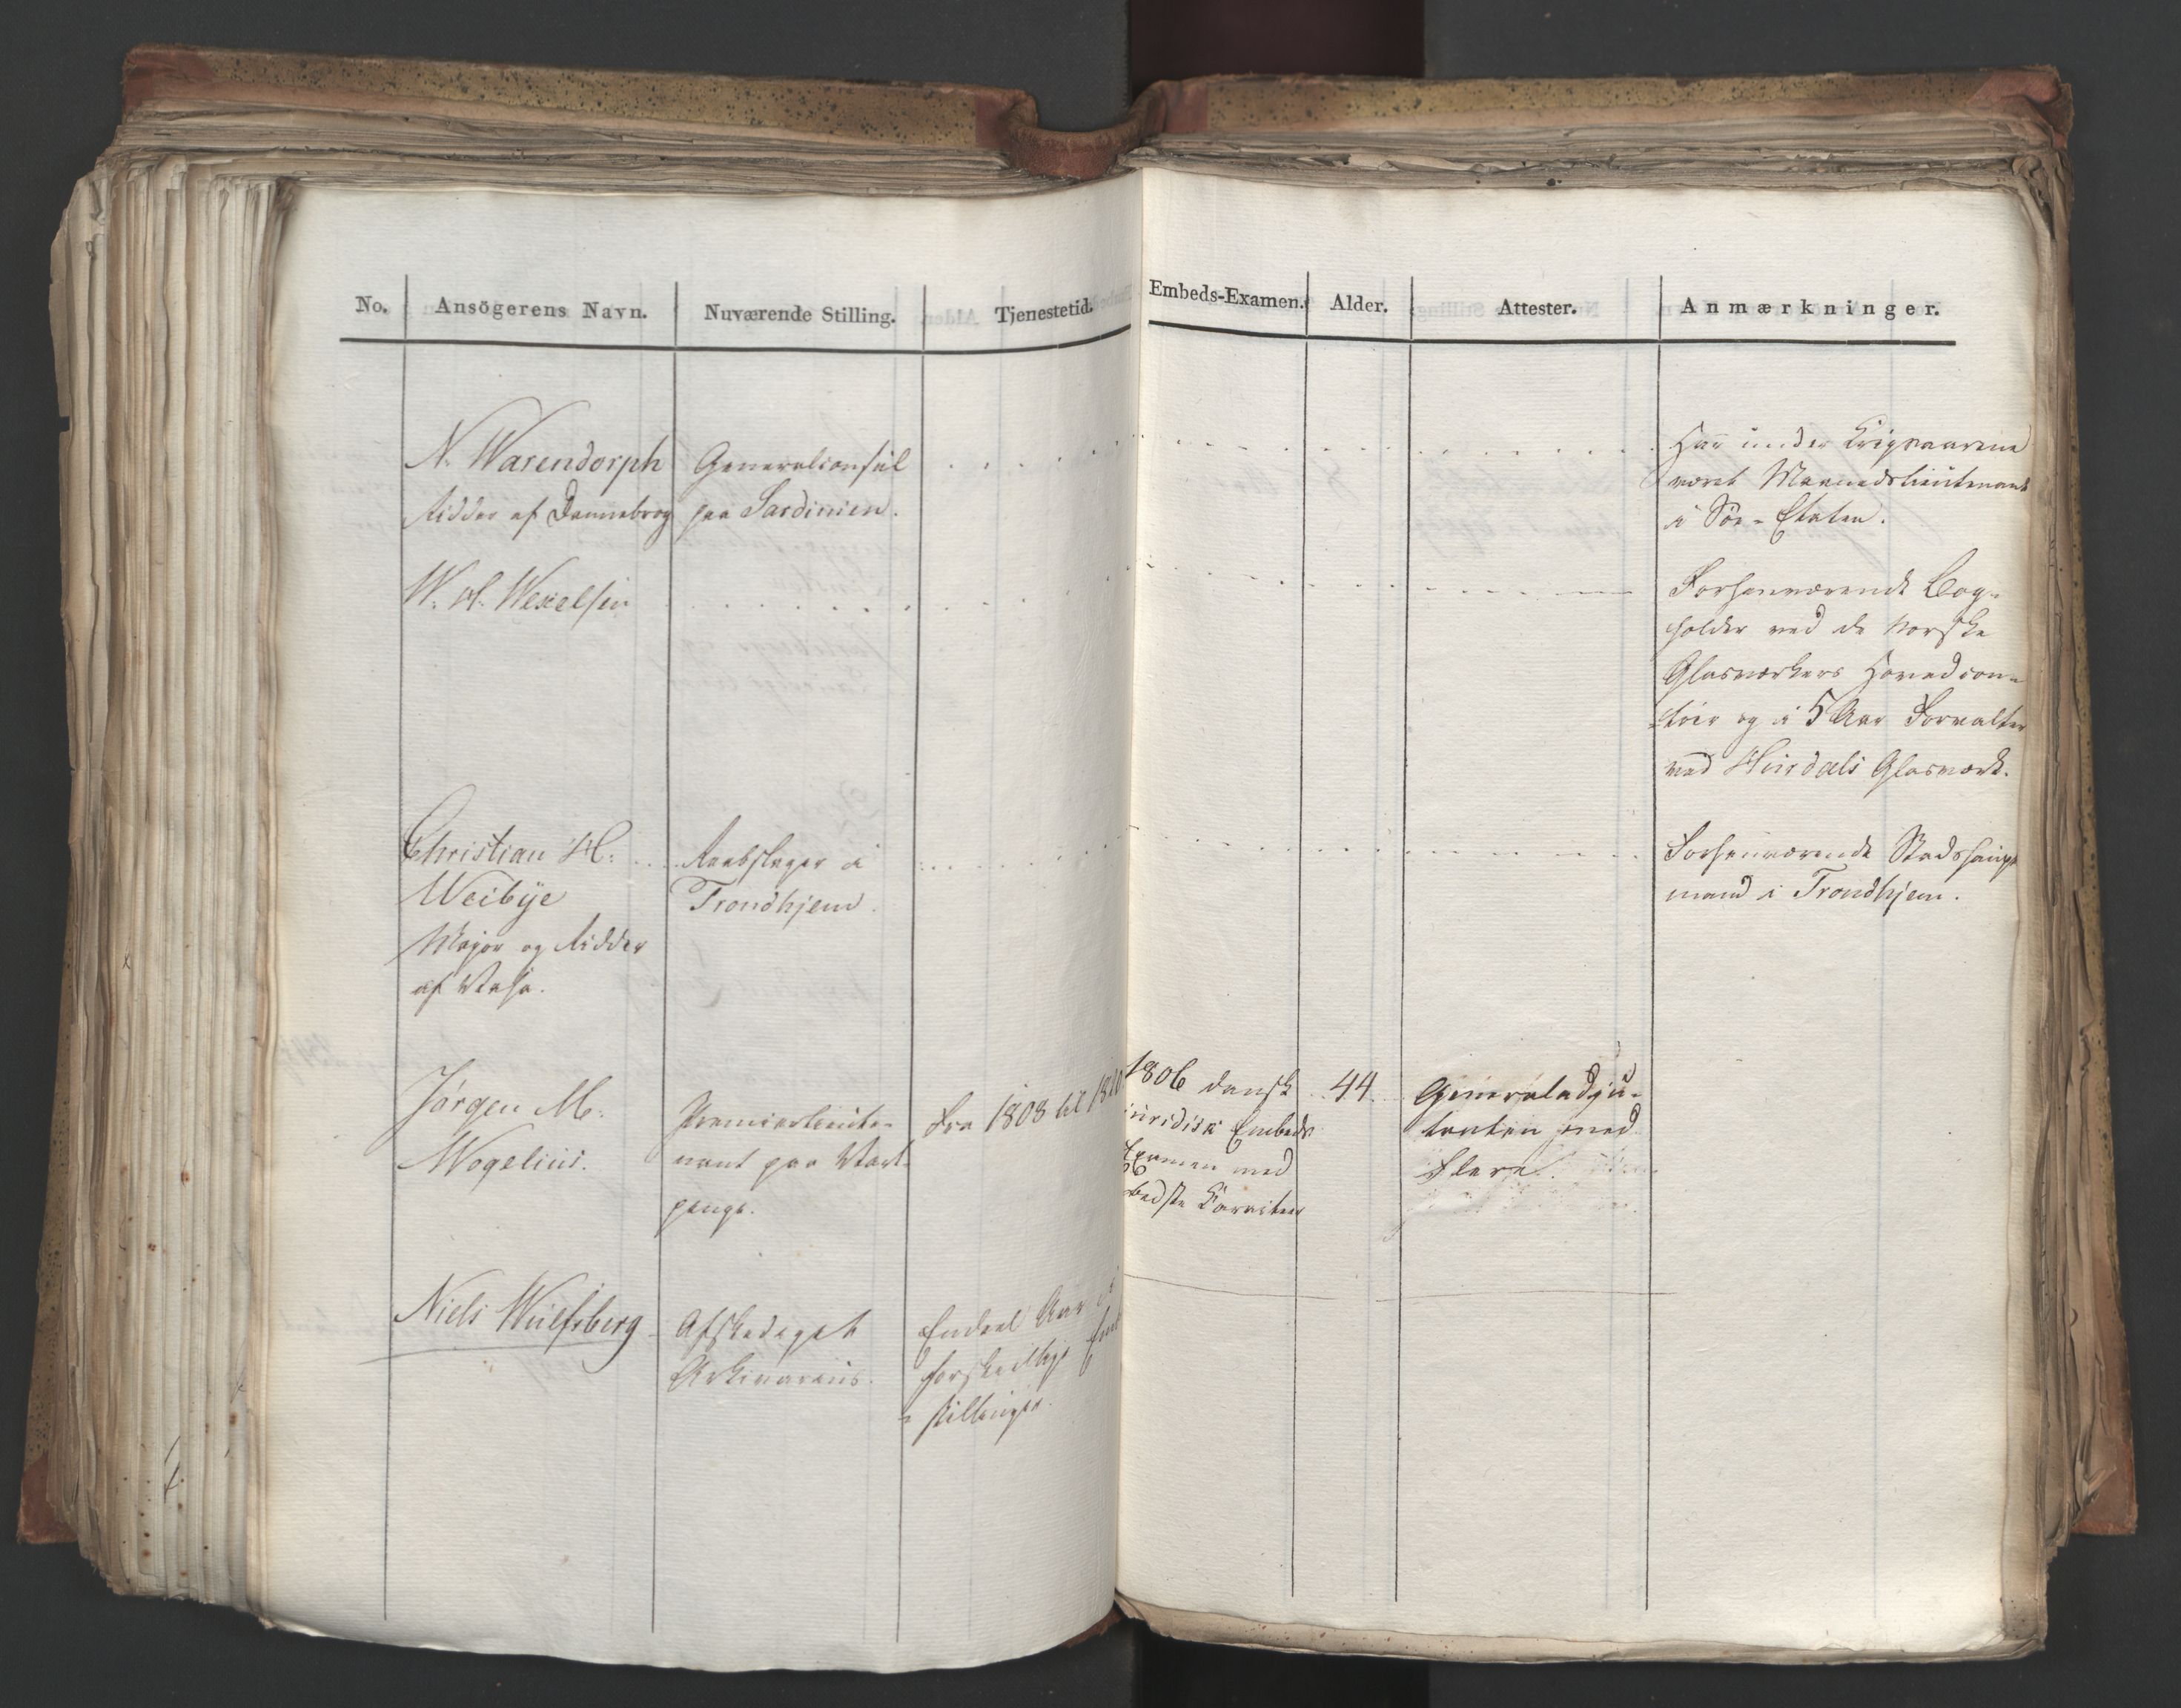 No. Ansögerens Navn. Nuværende Stilling. Tjenestetid. Embeds-Examen. Alder. Attester. Anmærkninger.
N. Warendorph
Ridder af Dannebrog
Generalconsul
paa Sardinien.
Har under Krigsaarene
været Maanedslieutenant
i Söe-Etaten.
W. H. Wexelsen
Forhenværende Bog-
holder ved de norske
Glasværkers Hovedcon-
toir og i 5 Aar Forvalter
ved Hurdals Glasværk.
Christian H.
Weibye
Major og Ridder
af Vasa.
Reebslager i
Trondhjem.
Forhenværende Stadshaupt
mand i Trondhjem.
Jörgen M.
Wogelius.
Premierlieute-
nant paa Vart-
penge.
Fra 1808 til 1820
1806 dansk
juridisk Embeds
Examen med
bedste Karakteer
44
Generaladju-
tanten med
Flere.
Niels Wulfsberg
Afskediget
Arkivarius.
Endeel Aar i
forskjellige Emb
stillinger.